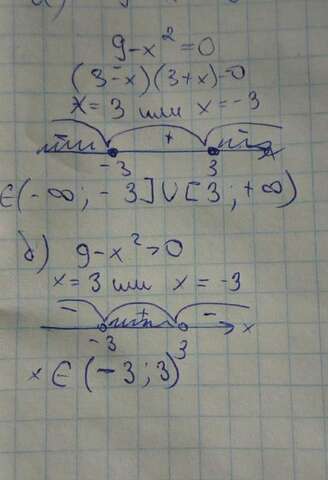 9-x²=0
(3-x)(3+x)=0
x=3 или x=-3
- + -
-3 3 x
∈(-∞; -3]∪[3; +∞)
б) 9-x²>0
x=3 или x=-3
- + -
-3 3 x
x∈(-3; 3)